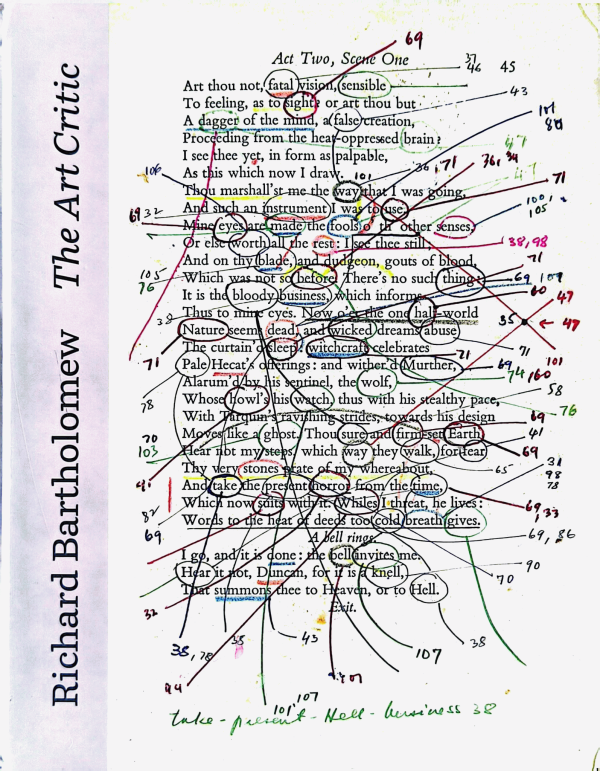 Richard Bartholomew The Art Critic
Act Two, Scene One
Art thou not, fatal vision, sensible
To feeling, as to sight? or art thou but
A dagger of the mind, a false creation,
Proceeding from the heat-oppressed brain?
I see thee yet, in form as palpable,
As this which now I draw.
Thou marshall'st me the way that I was going,
And such an instrument I was to use.
Mine eyes are made the fools o' th' other senses,
Or else worth all the rest: I see thee still;
And on thy blade, and dudgeon, gouts of blood,
Which was not so before. There's no such thing:
It is the bloody business, which informs
Thus to mine eyes. Now o'er the one half-world
Nature seems dead, and wicked dreams abuse
The curtain'd sleep: witchcraft celebrates
Pale Hecat's offerings: and wither'd Murther,
Alarum'd by his sentinel, the wolf,
Whose howl's his watch, thus with his stealthy pace,
With Tarquin's ravishing strides, towards his design
Moves like a ghost. Thou sure and firm-set Earth
Hear not my steps, which way they walk, for fear
Thy very stones prate of my whereabout,
And take the present horror from the time,
Which now suits with it. Whiles I threat, he lives:
Words to the heat of deeds too cold breath gives.
A bell rings.
I go, and it is done: the bell invites me.
Hear it not, Duncan, for it is a knell,
That summons thee to Heaven, or to Hell.
Exit.
69
46 45
43
101
71
76, 34
71
105
69 32
38, 98
71
105
76
69 109
60
47
35
47
71
71
69
101
74 160
58
78
76
69
70
103
41
69
65
31
98
78
82
69
69, 33
69, 86
90
70
32
38, 78
35
45
107
38
94
101 107
take - present - Hell - business 38